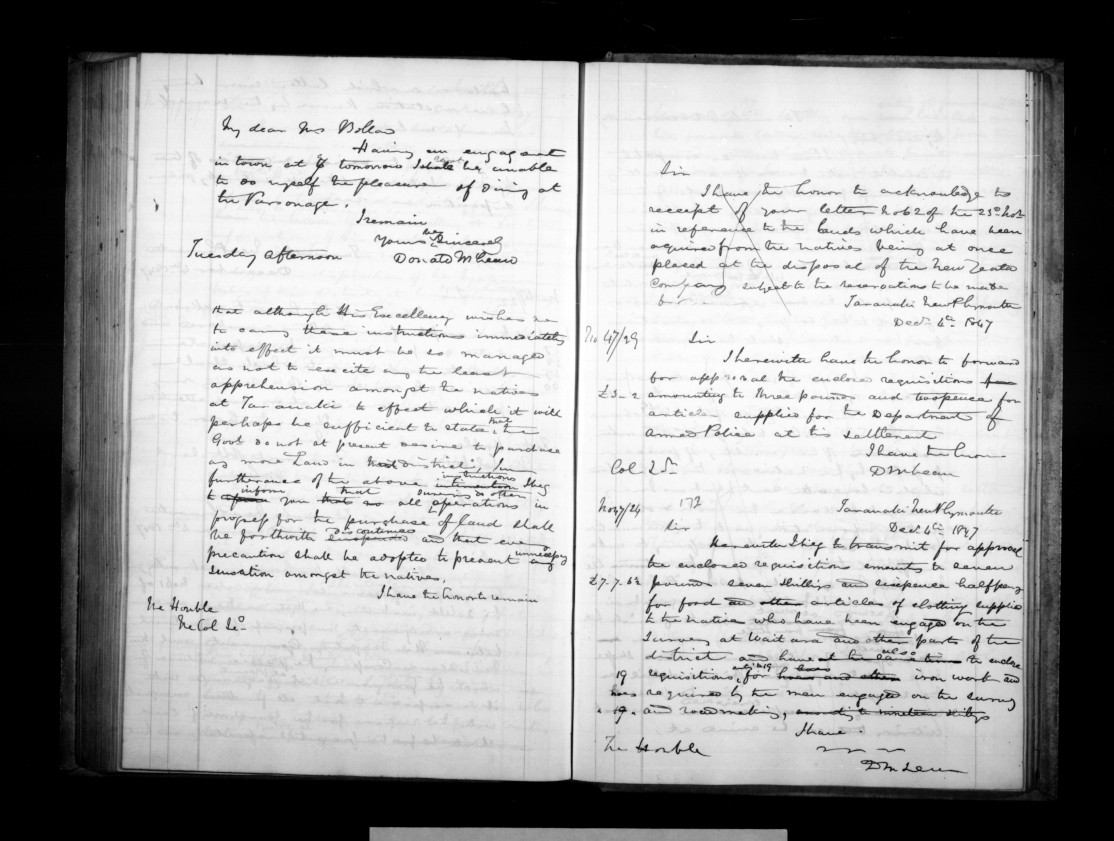 My dear Mrs Bolland
Having an engagement
in town at 6 tomorrow I shall be unable
to do myself the pleasure of dining at
the Parsonage.
I remain
Yours very Sincerely
Donald McLean
Tuesday afternoon
that although His Excellency wishes me
to carry these instructions immediately
into effect it must be so managed
as not to excite any the least
apprehension amongst the natives
at Taranaki to effect which it will
perhaps be sufficient to state that the
Govt do not at present desire to purchase
any more Land in that district; In
furtherance of the above intention instructions I beg
to inform you that all surveys & other operations in
progress for the purchase of land shall
be forthwith suspended discontinued and that every
precaution shall be adopted to prevent any unnecessary
sensation amongst the natives.
I have the honor to remain
The Honble
The Col Sec
Sir
I have the honor to acknowledge the
receipt of your letter No 62 of the 23d Inst
in reference to the lands which have been
aquired from the natives being at once
placed at the disposal of the New Zeald
Company subject to the reservations to be made
for
Taranaki New Plymouth
Decr 4th 1847
No 47/29 Sir
I herewith have the honor to forward
for approval the enclosed requisitions for
£3 - 2 amounting to three pounds and twopence for
articles supplied for the Department of
Armed Police at this settlement
I have the honor
Col Sec
D McLean
No 47/24 173 Taranaki New Plymouth
Sir Decr 4th 1847
Herewith I beg to transmit for approval
the enclosed requisitions amounts to seven
£7.7.6½ pounds seven shillings and sixpence halfpenny
for food and other articles of clothing supplied
to the natives who have been engaged on the
Survey at Waitara and other parts of the
district and have at the same time also to enclose
requisitions, for hoes and other iron work and
19
required by the men engaged on the survey
" 19 " and road making, amounting to nineteen shillings
I have
The Honble
D McLean